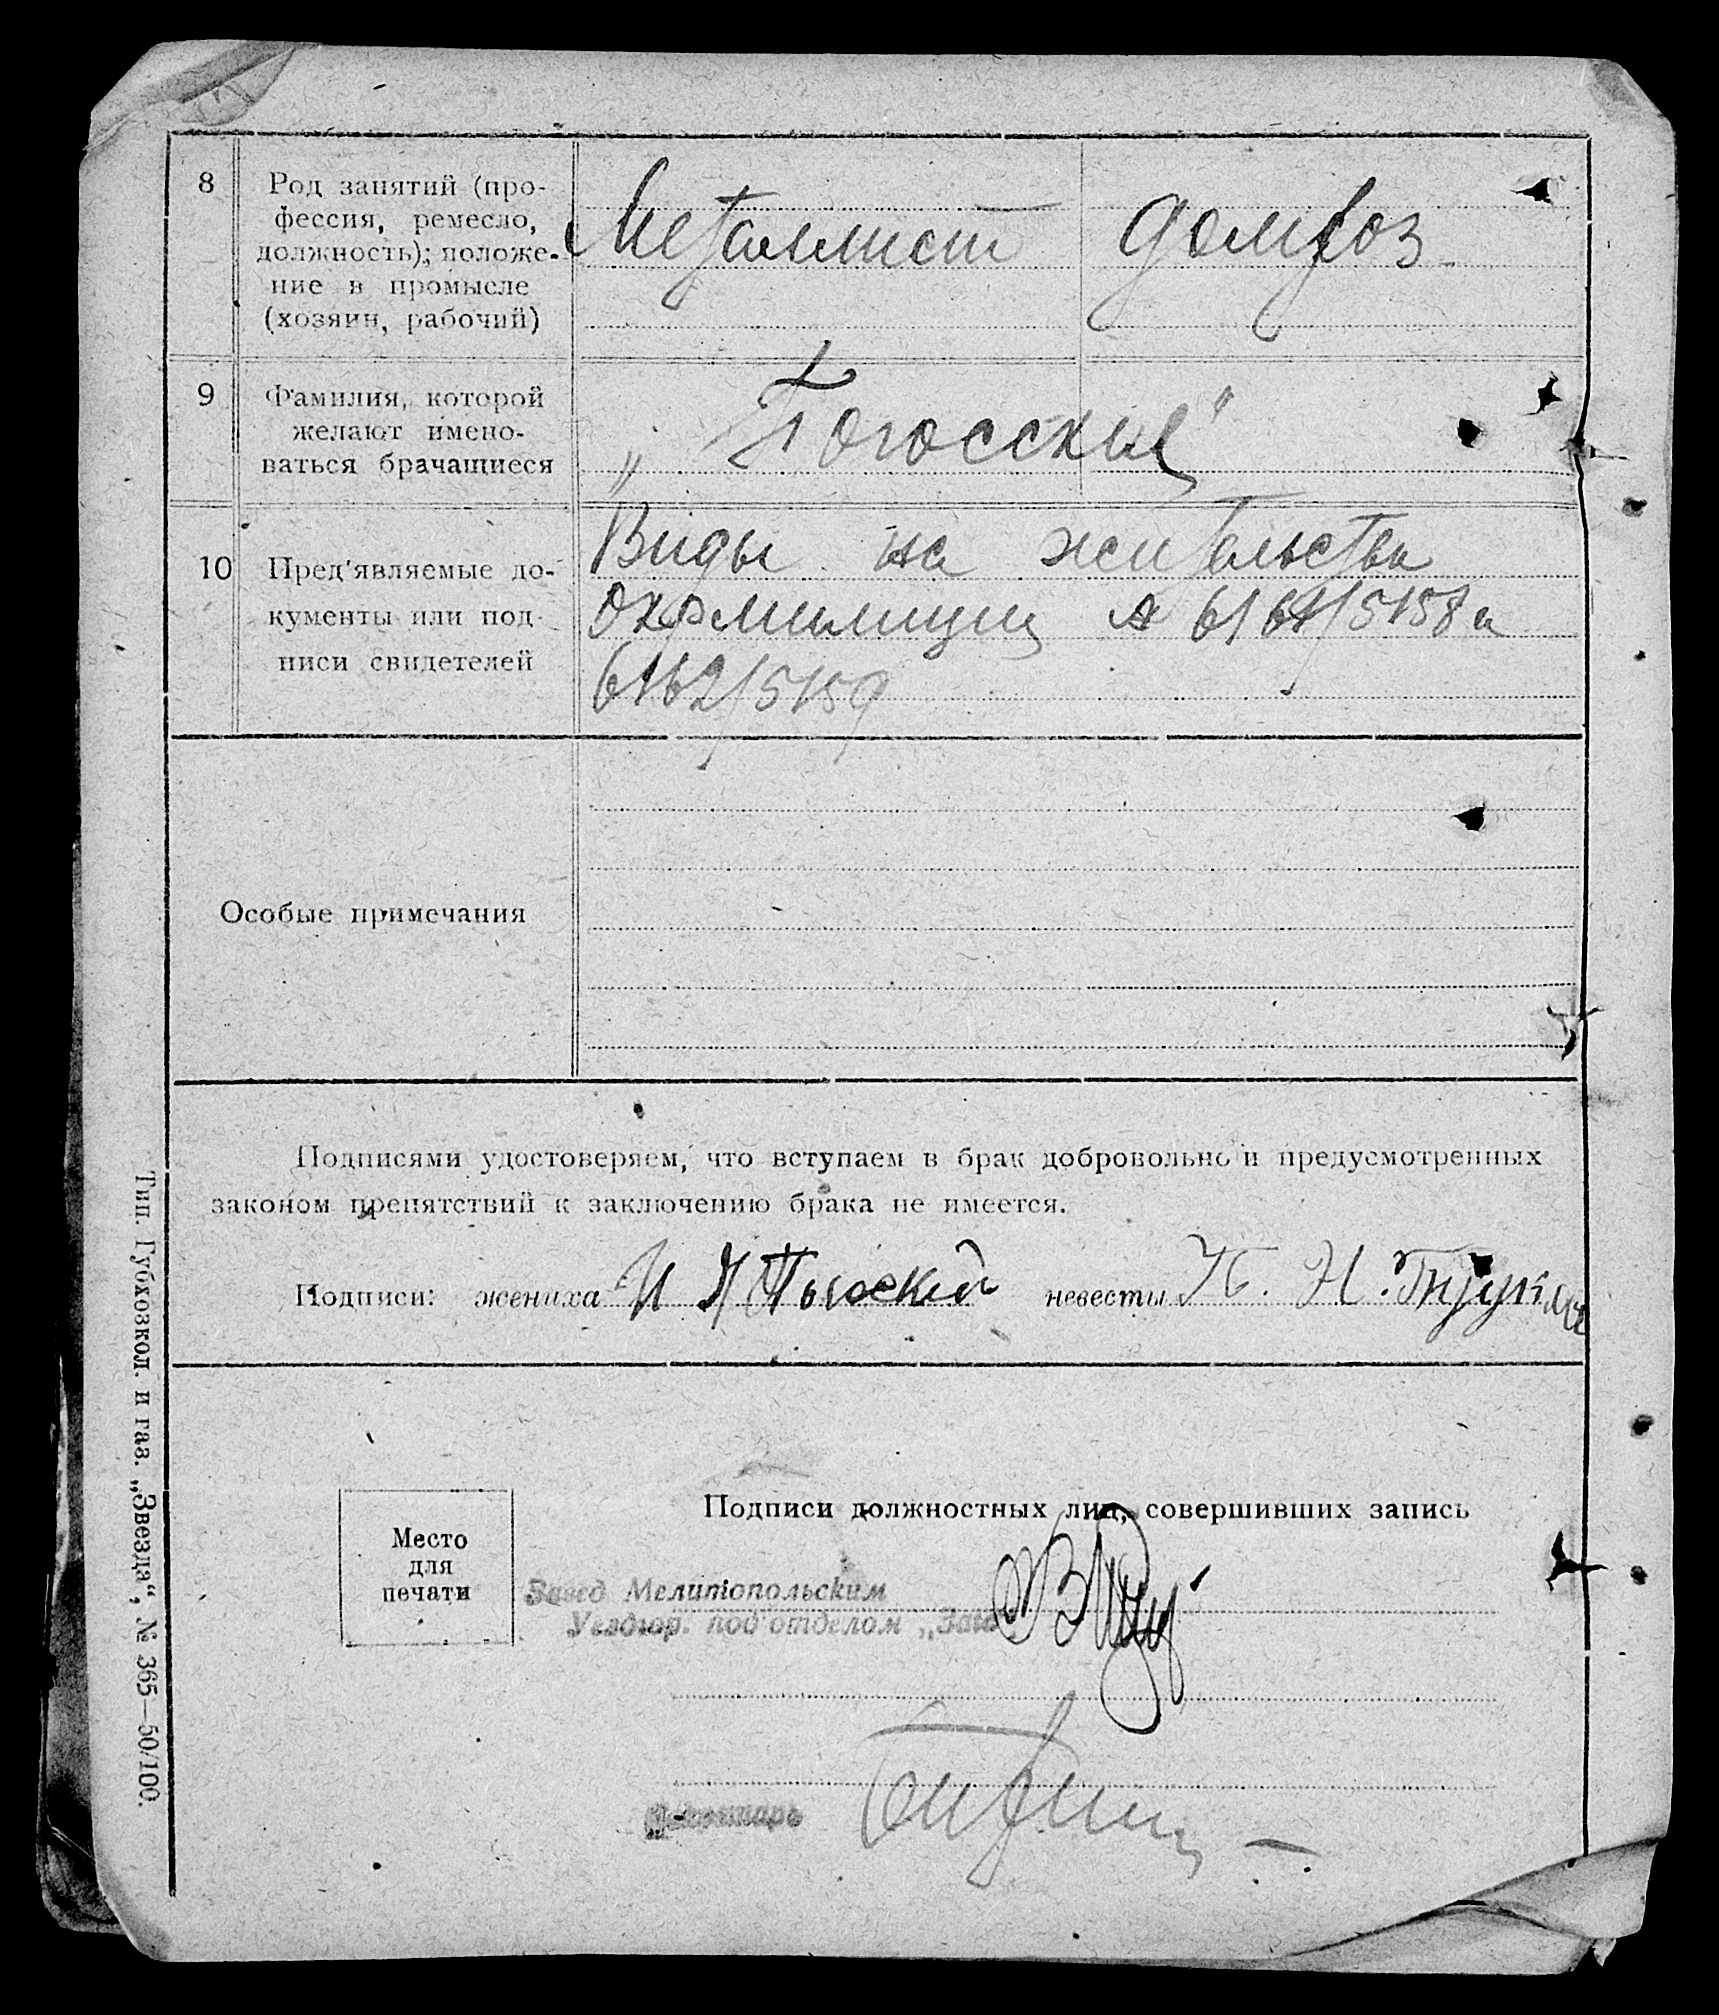 8
Род занятий (про-
фессия, ремесло,
должность); положе-
ние в промысле
(хозяин, рабочий)
Металлист
домхоз
9
Фамилия, которой
желают имено-
ваться брачащиеся
10
Пред'являемые до-
кументы или под-
писи свидетелей
Виды на жительства
Окрмилиции № 6161/5158 и
6162/5159
Особые примечания
Подписями удостоверяем, что вступаем в брак добровольно и предусмотренных
законом препятствий к заключению брака не имеется.
Подписи: жениха И невесты Н.
Подписи должностных лиц, совершивших запись
Место
для
печати
Завед Мелитопольским
Уездгор. под'отделом „Загс“
Секретарь
Тип. Губхозкол. и газ. „Звезда“, № 365—50/100.